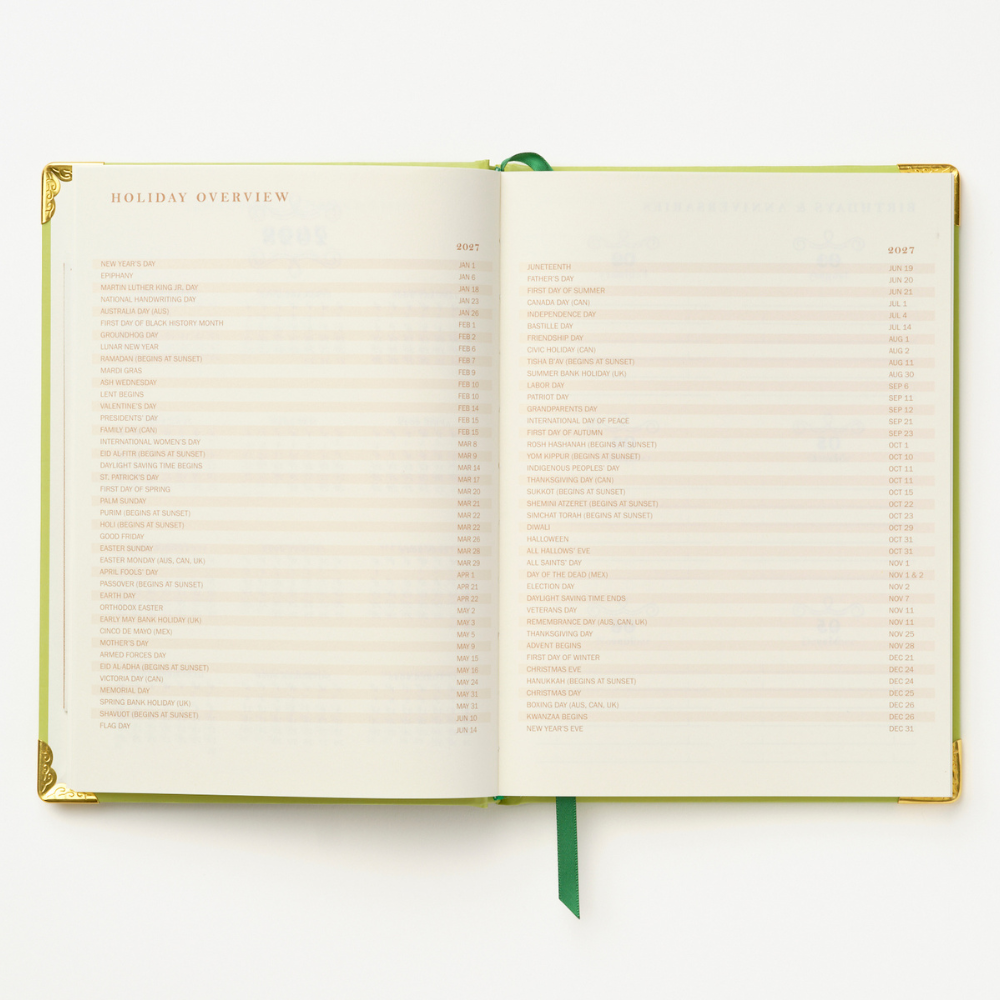 HOLIDAY OVERVIEW
2027
NEW YEAR'S DAY JAN 1
EPIPHANY JAN 6
MARTIN LUTHER KING JR. DAY JAN 18
NATIONAL HANDWRITING DAY JAN 23
AUSTRALIA DAY (AUS) JAN 26
FIRST DAY OF BLACK HISTORY MONTH FEB 1
GROUNDHOG DAY FEB 2
LUNAR NEW YEAR FEB 6
RAMADAN (BEGINS AT SUNSET) FEB 7
MARDI GRAS FEB 9
ASH WEDNESDAY FEB 10
LENT BEGINS FEB 10
VALENTINE'S DAY FEB 14
PRESIDENTS' DAY FEB 15
FAMILY DAY (CAN) FEB 15
INTERNATIONAL WOMEN'S DAY MAR 8
EID AL-FITR (BEGINS AT SUNSET) MAR 9
DAYLIGHT SAVING TIME BEGINS MAR 14
ST. PATRICK'S DAY MAR 17
FIRST DAY OF SPRING MAR 20
PALM SUNDAY MAR 21
PURIM (BEGINS AT SUNSET) MAR 22
HOLI (BEGINS AT SUNSET) MAR 22
GOOD FRIDAY MAR 26
EASTER SUNDAY MAR 28
EASTER MONDAY (AUS, CAN, UK) MAR 29
APRIL FOOLS' DAY APR 1
PASSOVER (BEGINS AT SUNSET) APR 21
EARTH DAY APR 22
ORTHODOX EASTER MAY 2
EARLY MAY BANK HOLIDAY (UK) MAY 3
CINCO DE MAYO (MEX) MAY 5
MOTHER'S DAY MAY 9
ARMED FORCES DAY MAY 15
EID AL-ADHA (BEGINS AT SUNSET) MAY 16
VICTORIA DAY (CAN) MAY 24
MEMORIAL DAY MAY 31
SPRING BANK HOLIDAY (UK) MAY 31
SHAVUOT (BEGINS AT SUNSET) JUN 10
FLAG DAY JUN 14
2027
JUNETEENTH JUN 19
FATHER'S DAY JUN 20
FIRST DAY OF SUMMER JUN 21
CANADA DAY (CAN) JUL 1
INDEPENDENCE DAY JUL 4
BASTILLE DAY JUL 14
FRIENDSHIP DAY AUG 1
CIVIC HOLIDAY (CAN) AUG 2
TISHA B'AV (BEGINS AT SUNSET) AUG 11
SUMMER BANK HOLIDAY (UK) AUG 30
LABOR DAY SEP 6
PATRIOT DAY SEP 11
GRANDPARENTS DAY SEP 12
INTERNATIONAL DAY OF PEACE SEP 21
FIRST DAY OF AUTUMN SEP 23
ROSH HASHANAH (BEGINS AT SUNSET) OCT 1
YOM KIPPUR (BEGINS AT SUNSET) OCT 10
INDIGENOUS PEOPLES' DAY OCT 11
THANKSGIVING DAY (CAN) OCT 11
SUKKOT (BEGINS AT SUNSET) OCT 15
SHEMINI ATZERET (BEGINS AT SUNSET) OCT 22
SIMCHAT TORAH (BEGINS AT SUNSET) OCT 23
DIWALI OCT 29
HALLOWEEN OCT 31
ALL HALLOWS' EVE OCT 31
ALL SAINTS' DAY NOV 1
DAY OF THE DEAD (MEX) NOV 1 & 2
ELECTION DAY NOV 2
DAYLIGHT SAVING TIME ENDS NOV 7
VETERANS DAY NOV 11
REMEMBRANCE DAY (AUS, CAN, UK) NOV 11
THANKSGIVING DAY NOV 25
ADVENT BEGINS NOV 28
FIRST DAY OF WINTER DEC 21
CHRISTMAS EVE DEC 24
HANUKKAH (BEGINS AT SUNSET) DEC 24
CHRISTMAS DAY DEC 25
BOXING DAY (AUS, CAN, UK) DEC 26
KWANZAA BEGINS DEC 26
NEW YEAR'S EVE DEC 31